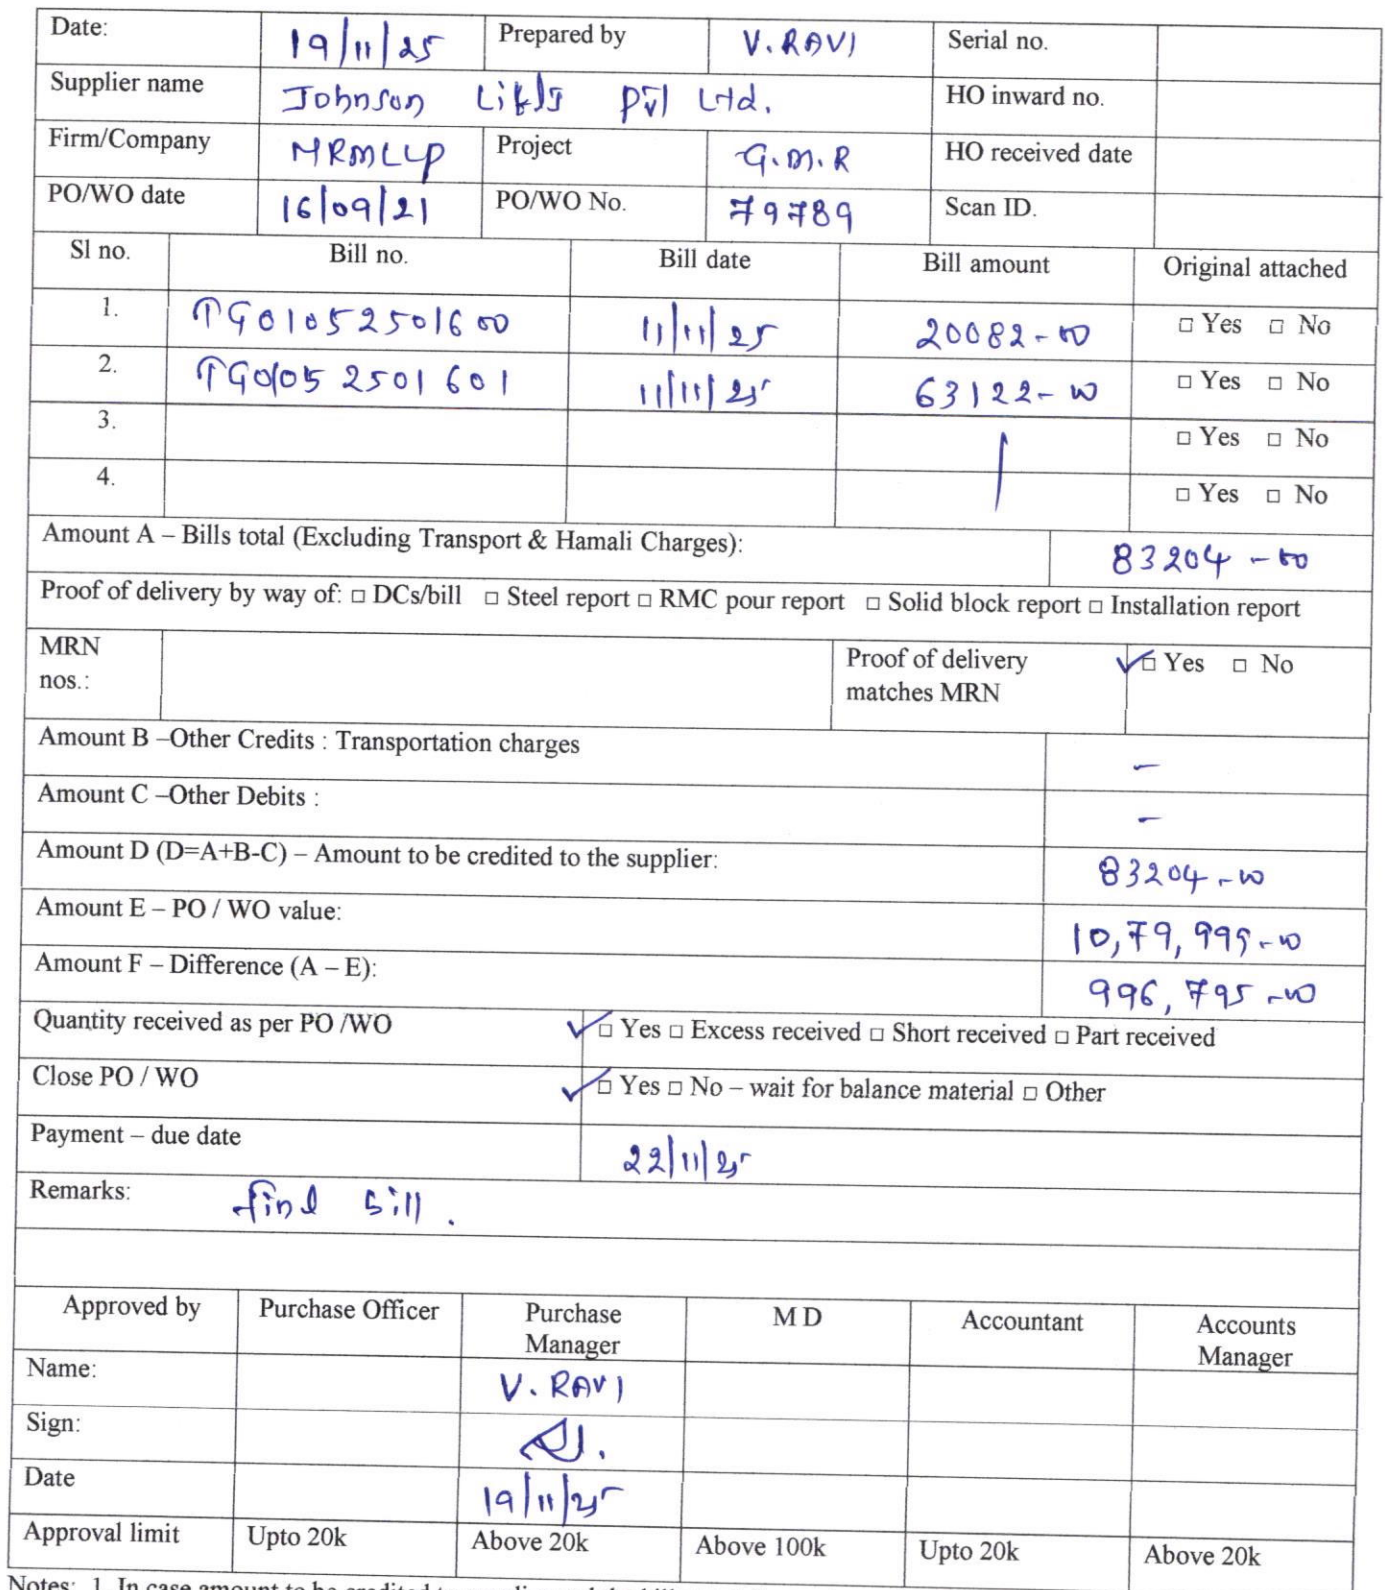 Date: 19/11/25 Prepared by V. RAVI Serial no.
Supplier name Johnson Lifts Pvt Ltd. HO inward no.
Firm/Company MRMLLP Project G.M.R HO received date
PO/WO date 16/09/21 PO/WO No. 79789 Scan ID.
Sl no. Bill no. Bill date Bill amount Original attached
1. TG01052501600 11/11/25 20082-00 □ Yes □ No
2. TG01052501601 11/11/25 63122-00 □ Yes □ No
3. □ Yes □ No
4. □ Yes □ No
Amount A – Bills total (Excluding Transport & Hamali Charges): 83204-00
Proof of delivery by way of: □ DCs/bill □ Steel report □ RMC pour report □ Solid block report □ Installation report
MRN nos.: Proof of delivery matches MRN ✓□ Yes □ No
Amount B –Other Credits : Transportation charges -
Amount C –Other Debits : -
Amount D (D=A+B-C) – Amount to be credited to the supplier: 83204-00
Amount E – PO / WO value: 10,79,999-00
Amount F – Difference (A – E): 996,795-00
Quantity received as per PO /WO ✓□ Yes □ Excess received □ Short received □ Part received
Close PO / WO ✓□ Yes □ No – wait for balance material □ Other
Payment – due date 22/11/25
Remarks: final bill.
Approved by Purchase Officer Purchase Manager M D Accountant Accounts Manager
Name: V. RAVI
Sign:
Date 19/11/25
Approval limit Upto 20k Above 20k Above 100k Upto 20k Above 20k